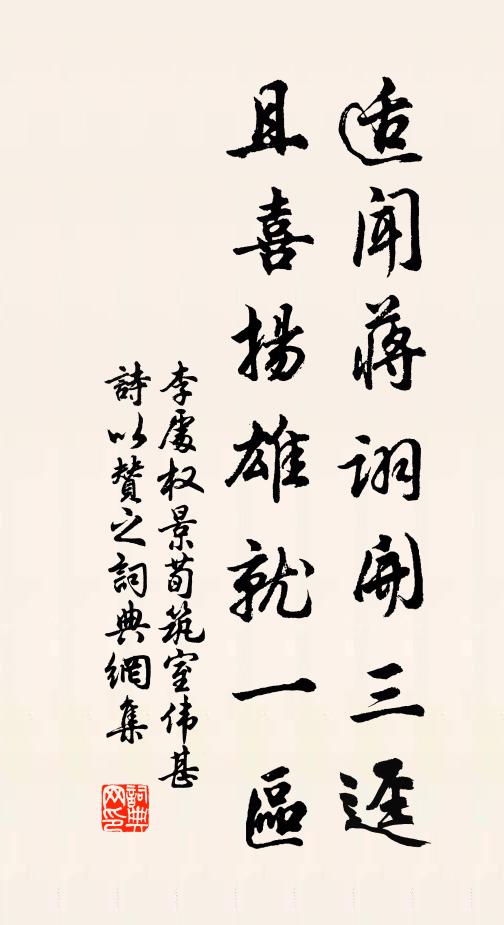 适聞蔣詡開三逕
且喜揚雄就一區
李處权景荀筑室伟甚
詩以贊之詞典網集
詞典网印